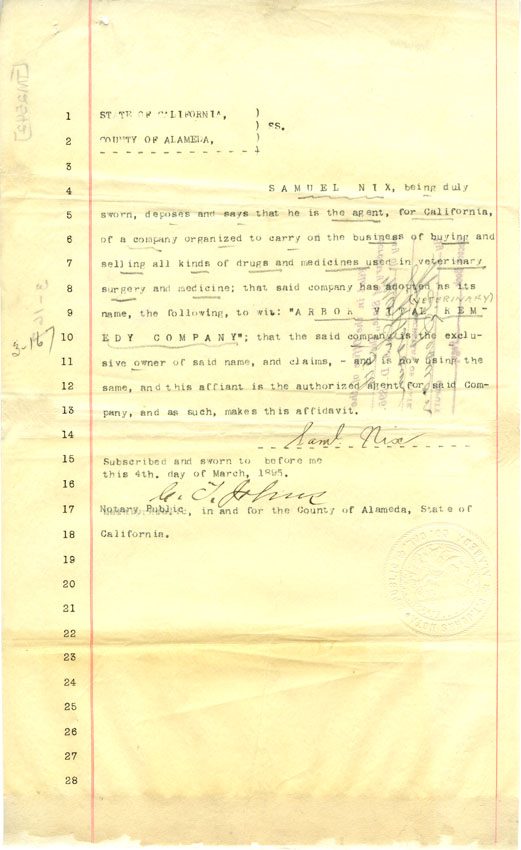 1 STATE OF CALIFORNIA, )
) SS.
2 COUNTY OF ALAMEDA, )
3
4 SAMUEL NIX, being duly
5 sworn, deposes and says that he is the agent, for California,
6 of a company organized to carry on the business of buying and
7 selling all kinds of drugs and medicines used in veterinary
8 surgery and medicine; that said company has adopted as its
(VETERINARY)
9 name, the following, to wit: "ARBOR VITAE REM-
10 EDY COMPANY"; that the said company is the exclu-
11 sive owner of said name, and claims, - and is now using the
12 same, and this affiant is the authorized agent for said Com-
13 pany, and as such, makes this affidavit.
14 Saml Nix
15 Subscribed and sworn to before me
this 4th. day of March, 1895.
16 C. T. Johns
17 Notary Public, in and for the County of Alameda, State of
18 California.
19
20
21
22
23
24
25
26
27
28